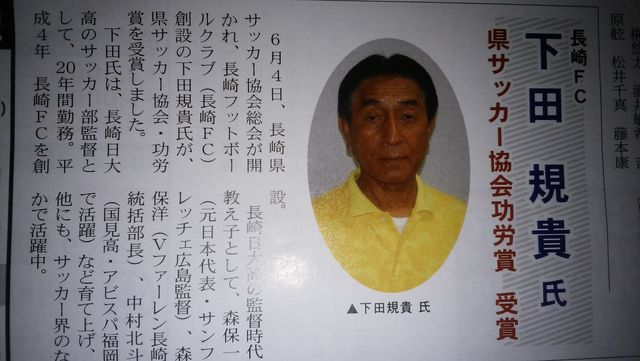 原舷 松井千真 藤本康
長崎FC
下田 規貴 氏
県サッカー協会功労賞 受賞
▲下田規貴 氏
6月4日、長崎県
サッカー協会総会が開
かれ、長崎フットボー
ルクラブ（長崎FC）
創設の下田規貴氏が、
県サッカー協会・功労
賞を受賞しました。
下田氏は、長崎日大
高のサッカー部監督と
して、20年間勤務。平
成4年 長崎FCを創
設。
長崎日大高の監督時代
教え子として、森保一
（元日本代表・サンフ
レッチェ広島監督）、森
保洋（Vファーレン長崎
統括部長）、中村北斗
（国見高・アビスパ福岡
で活躍）など育て上げ、
他にも、サッカー界のな
かで活躍中。